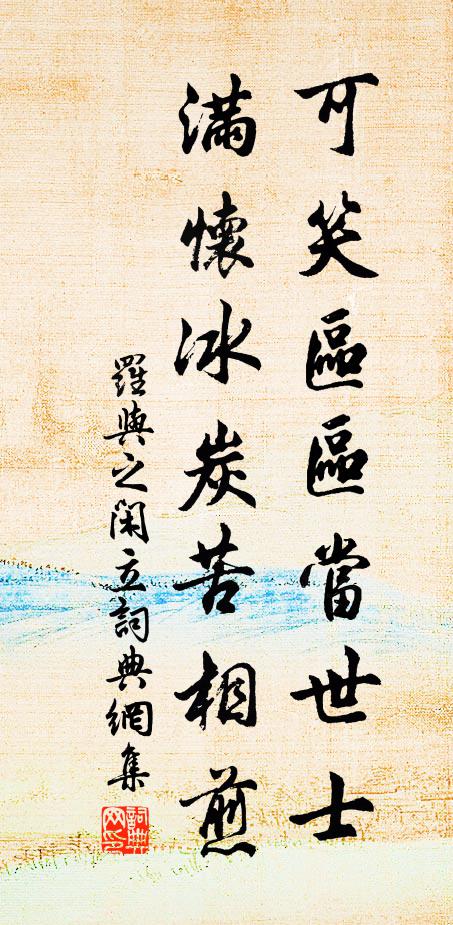 可笑區區當世士
滿懷冰炭苦相煎
羅與之閑立詞典網集
詞典網印